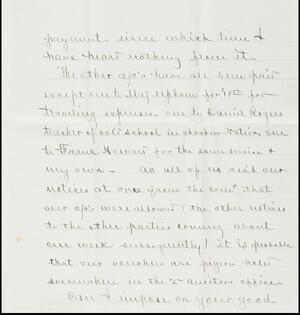 payment. since which time I
have heard nothing from it.
The other a/c's have all been paid
except one to Maj Upham for for
traveling expenses one to David Rogers
teacher of cold school in choctaw Nation one
to Frank Howard for the same service &
my own – As all of us recd our
notices at once from the comr that
our a/cs were allowed (the other notices
to the other parties coming about
one week subsequently) it is probable
that our vouchers are pigeon-holed
somewhere in the 2d auditors office.
Can I impose on your good